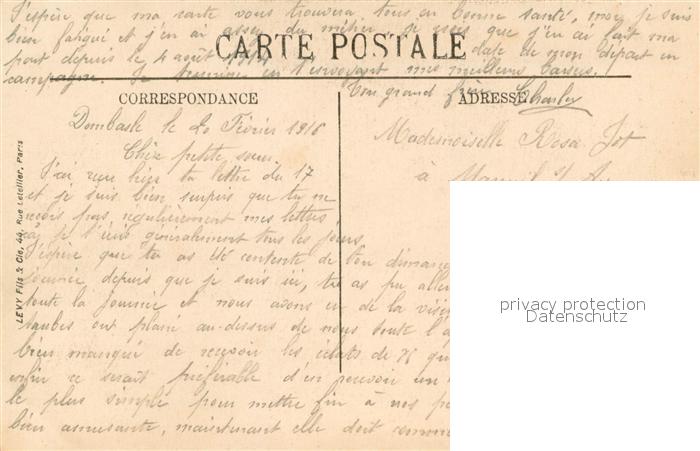 J'espère que ma carte vous trouvera tous en bonne santé, moi je suis
bien fatigué et j'en ai assez du métier je crois que j'en ai fait ma
part depuis le 4 août 1914 date de mon départ en
campagne. Je termine en t'envoyant mes meilleurs baisers.
Ton grand frère Charles
CARTE POSTALE
CORRESPONDANCE
ADRESSE
Dombasle le 20 Février 1916
Mademoiselle Rosa Jot
à
Chère petite soeur
J'ai reçu hier ta lettre du 17
et je suis bien surpris que tu ne
reçois pas régulièrement mes lettres
car je t'écris généralement tous les jours
J'espère que tu as été contente de ton dimanche
journée depuis que je suis ici, tu as pu aller
toute la journée et nous avons eu de la visite
taubes ont plané au-dessus de nous tout l'
bien manqué de recevoir les éclats de 75 qu
enfin ce serait préférable d'en recevoir un
le plus simple pour mettre fin à nos
bien amusante, maintenant elle doit
LEVY Fils & Cie, 44, Rue Letellier, Paris
privacy protection
Datenschutz